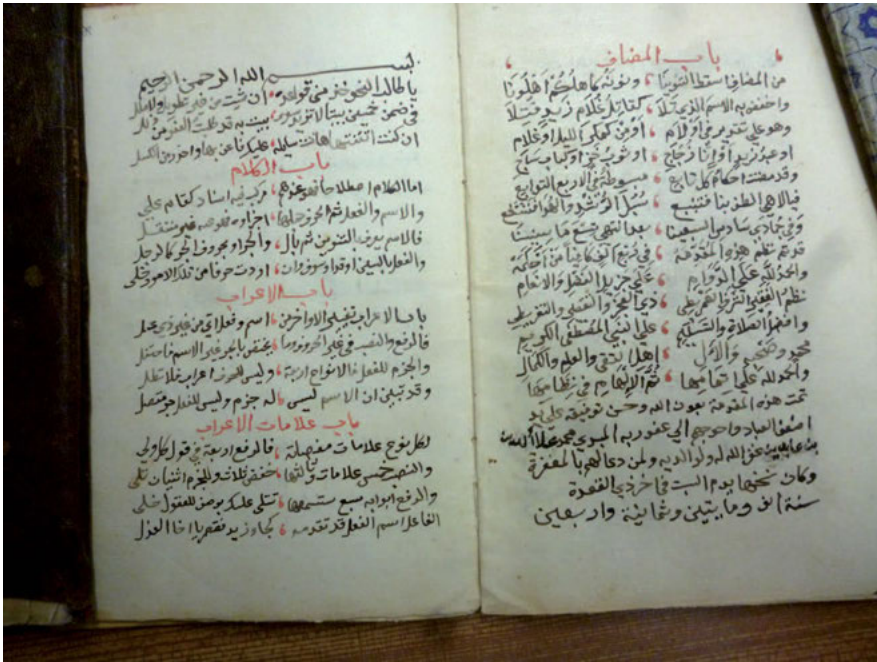 باب المضاف
من المضاف اسقط التنوينا ، ونونه كاهلكم اهلونا
واخفض به الاسم الذي تلا ، كقاتل غلام زيد قتلا
وهو على تقدير في او لام ، او من كمكر الليل او غلام
او عبد زيد او إنا زجاج ، او ثوب خز او كباب ساج
وقد مضت احكام كل تابع ، مبسوطة في الاربع التوابع
فيا الاهي الطف بنا فنتبع ، سبل الرشد والهدى فنرتفع
وفي جمادى سادس السبعينا ، بعد انتهى تسع
قد تم نظم هذه المقدمة ، في ربع الف كافيا من احكمه
والحمد لله على الدوام ، على جزيل الفضل والانعام
نظم الفقير الشرف العمريطي ، ذي العجز والتقصير والتفريط
وافضل الصلاة والتسليم ، على النبي المصطفى الكريم
محمد وصحبه والآل ، اهل التقى والعلم والكمال
والحمد لله على تمامها ، ثم الالهام في نظامها
تمت هذه المقدمة بعون الله وحسن توفيقه على يد
اضعف العباد واحوجهم الى عفو ربه المبدي محمد علا الدين
بن عابدين غفر الله له ولوالديه ولمن دعا لهم بالمغفرة
وكان نسخها يوم السبت في اخر ذي القعدة
سنة الف ومايتين وثمانية واربعين
بسم الله الرحمن الرحيم
يا طالب النحو خذ مني قواعده ،
في ضمن خمسين بيتا لا تزيد سوى ، بيت به قد
ان كنت اتقنتها هانت مسايله ، عليك
باب الكلام
اما الكلام اصطلاحا فهو عندهم ، مركب فيه اسناد كقام علي
والاسم والفعل ثم الحرف جملتها ، اجزاوه فهو عنه غير منتقل
فالاسم يعرف بالتنوين ثم بأل ، والجر او بحروف الجر كالرجل
والفعل بالسين او قد او بسوف وان ، اردت حرفا من تلك الامور خلي
باب الاعراب
باب الاعراب تغيير الاواخر من ، اسم وفعل اتى من غير ذي عمل
فالرفع والنصب في غير الحروف وما ، يختص بالجر غير الاسم فامتثل
والجزم للفعل فالانواع اربعة ، وليس للحرف اعراب فلا تطل
وقد تبين ان الاسم ليس ، له جزم وليس للفعل جر متصل
باب علامات الاعراب
لكل نوع علامات مفصلة ، فالرفع اربعة في قول كل ولي
والنصب خمس علامات وثالثها ، خفض ثلاث وللجزم اثنتان تلي
والرفع ابوابه سبع ستسمعها ، تتلى عليك بوضع للعقول جلي
الفاعل اسم الفعل قد تقدمه ، كجاء زيد فقصر يا اخا العذل